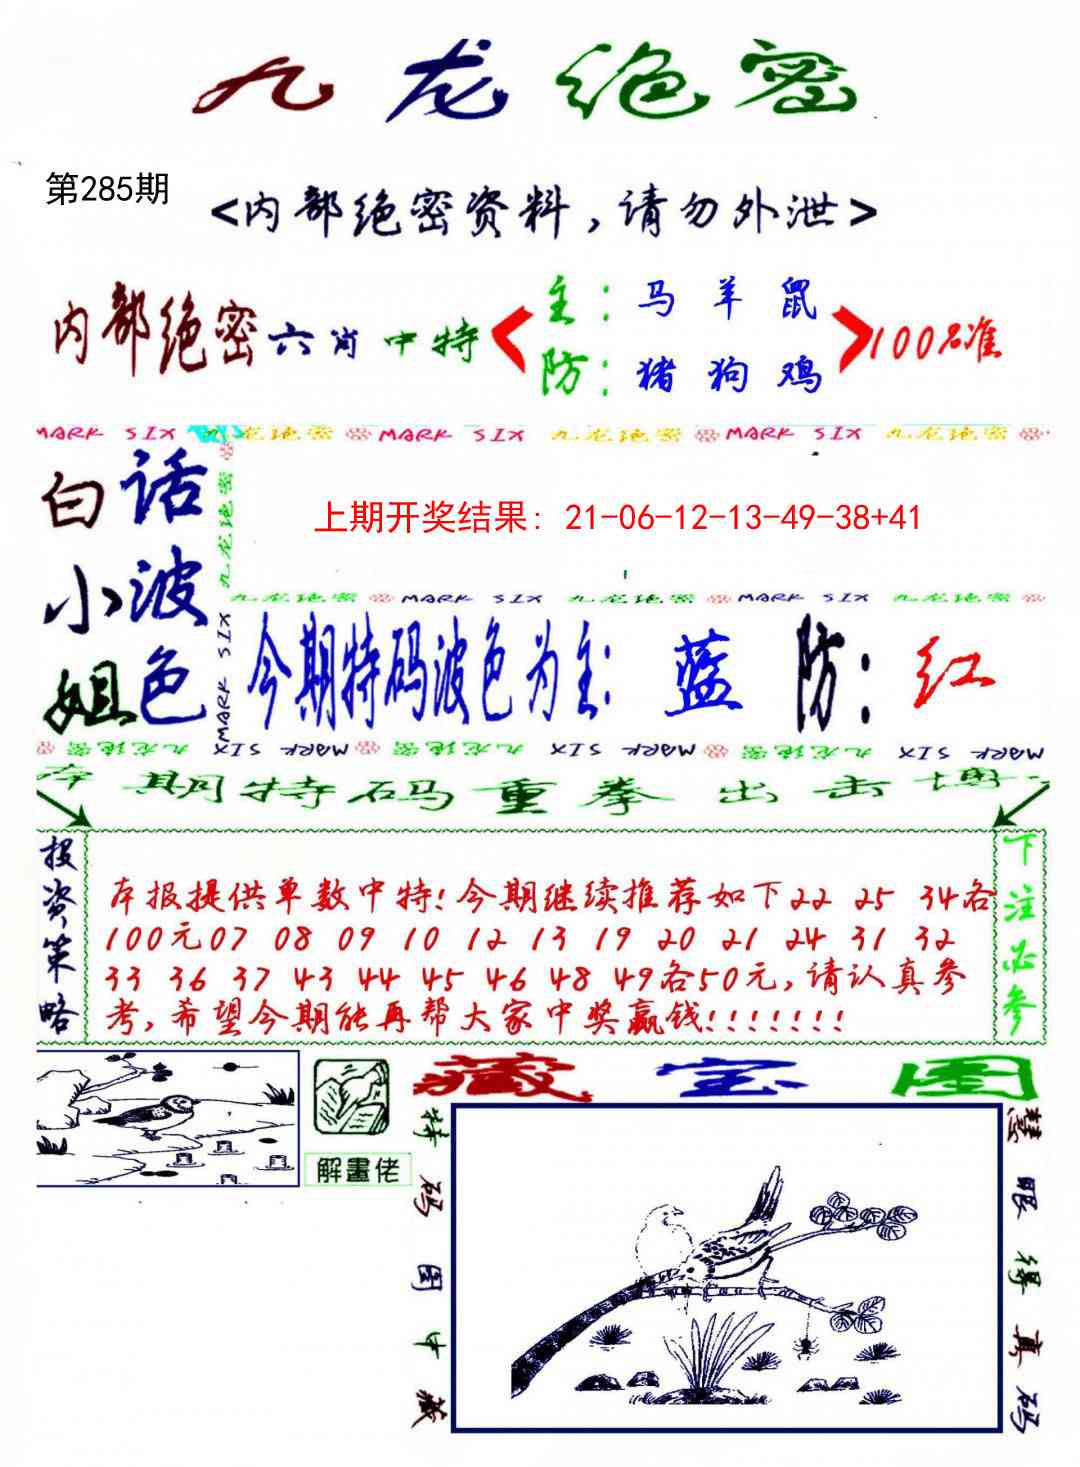 九龙绝密
第285期
<内部绝密资料,请勿外泄>
内部绝密六肖中特
主:马羊鼠
防:猪狗鸡
100%准
MARK SIX 九龙绝密 MARK SIX 九龙绝密 MARK SIX 九龙绝密
白小姐
话波色
九龙绝密
MARK SIX
上期开奖结果: 21-06-12-13-49-38+41
九龙绝密 MARK SIX 九龙绝密 MARK SIX 九龙绝密
今期特码波色为主:蓝 防:红
九龙绝密 MARK SIX 九龙绝密 MARK SIX 九龙绝密 MARK SIX
本期特码重拳出击博
投资策略
本报提供单数中特!今期继续推荐如下22 25 34各
100元07 08 09 10 12 13 19 20 21 24 31 32
33 36 37 43 44 45 46 48 49各50元,请认真参
考,希望今期能再帮大家中奖赢钱!!!!!!!
下注必参
解畫佬
藏宝图
特码图中藏
慧眼得真码